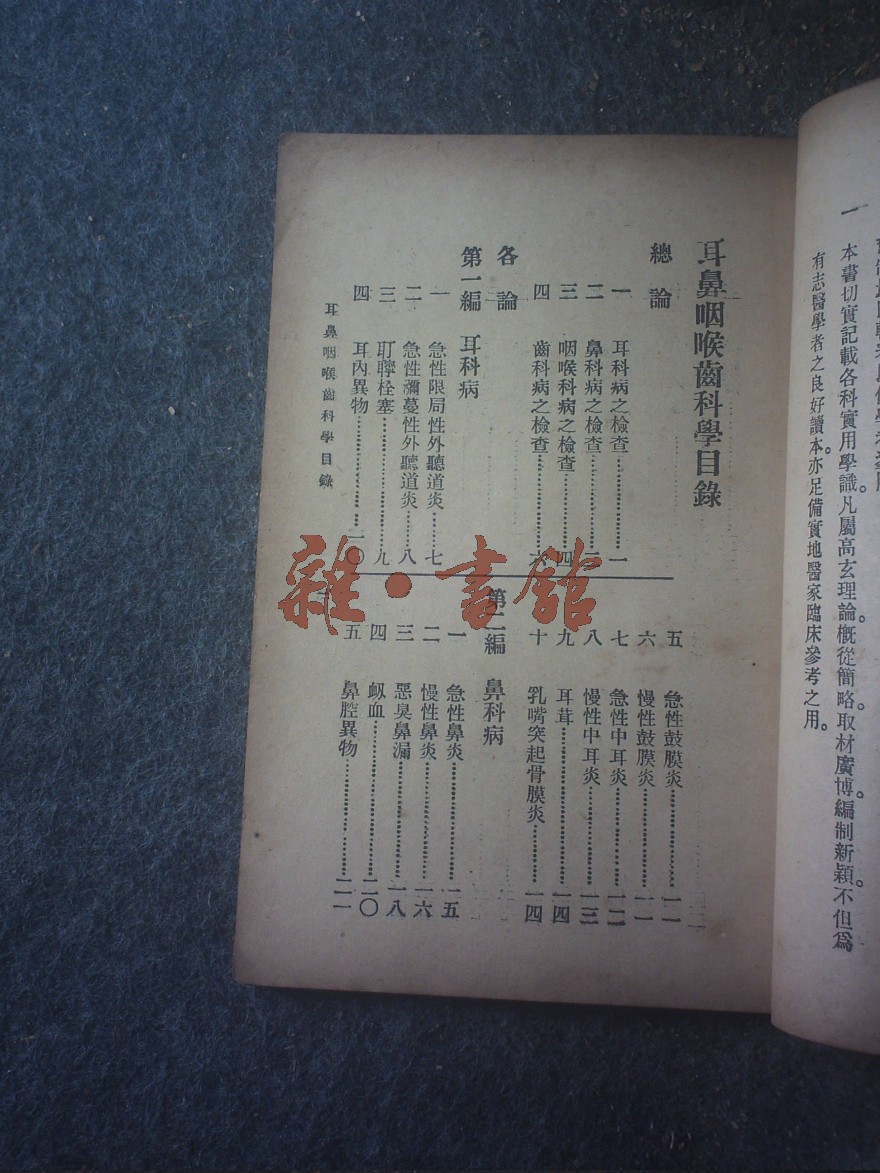 一 本書切實記載各科實用學識。凡屬高玄理論。概從簡略。取材廣博。編制新穎。不但爲
有志醫學者之良好讀本。亦足備實地醫家臨床參考之用。
耳鼻咽喉齒科學目錄
總論
一 耳科病之檢查 一
二 鼻科病之檢查 二
三 咽喉科病之檢查 四
四 齒科病之檢查 六
各論
第一編 耳科病
一 急性限局性外聽道炎 七
二 急性瀰蔓性外聽道炎 八
三 耵聹栓塞 九
四 耳內異物 一〇
五 急性鼓膜炎 一一
六 慢性鼓膜炎 一一
七 急性中耳炎 一二
八 慢性中耳炎 一三
九 耳茸 一四
十 乳嘴突起骨膜炎 一四
第二編 鼻科病
一 急性鼻炎 一五
二 慢性鼻炎 一六
三 惡臭鼻漏 一八
四 衂血 二〇
五 鼻腔異物
耳鼻咽喉齒科學目錄
雜·書館